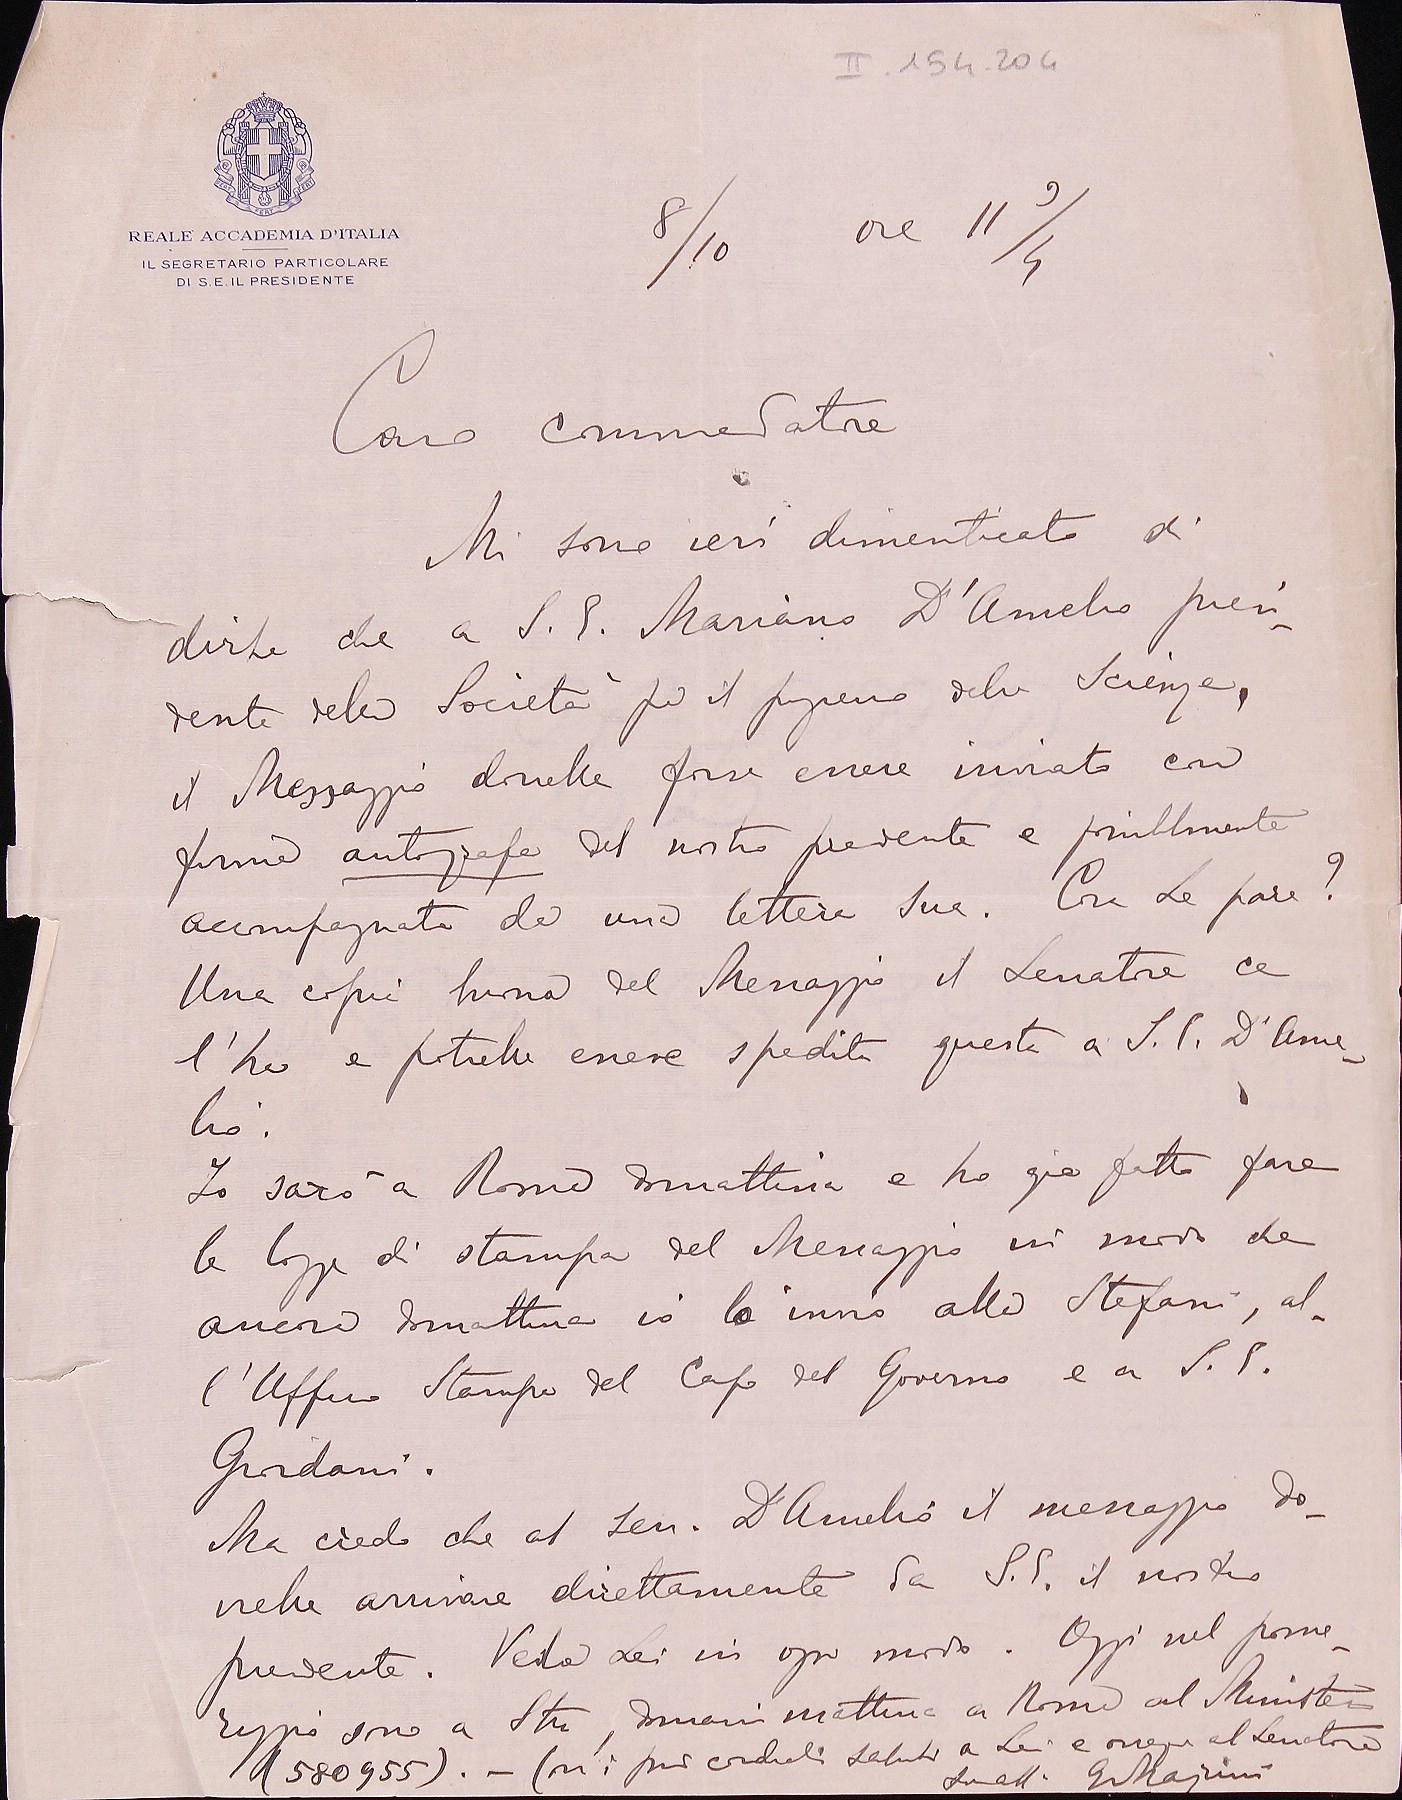 II.154.204
REALE ACCADEMIA D'ITALIA
IL SEGRETARIO PARTICOLARE
DI S.E. IL PRESIDENTE
8/10 ore 11 3/4
Caro commendatore
Mi sono ieri dimenticato di
dirle che a S. E. Mariano D'Amelio presi-
dente della Società per il progresso delle Scienze,
il Messaggio dovrebbe forse essere inviato con
firma autografa del nostro presidente e possibilmente
accompagnato da una lettera sua. Cosa Le pare?
Una copia buona del Messaggio il Senatore ce
l'ha e potrebbe essere spedita questa a S. E. D'Ame-
lio.
Io sarò a Roma domattina e ho già fatto fare
le bozze di stampa del Messaggio in modo che
ancora domattina io lo invio alla Stefani, al-
l'Ufficio Stampa del Capo del Governo e a S. E.
Giordani.
Ma credo che al sen. D'Amelio il messaggio do-
vrebbe arrivare direttamente da S.E. il nostro
presidente. Veda Lei in ogni modo. Oggi nel pome-
riggio sono a Stra, domani mattina a Roma al Ministero
(580955). — i più cordiali saluti a Lei e ossequi al Senatore